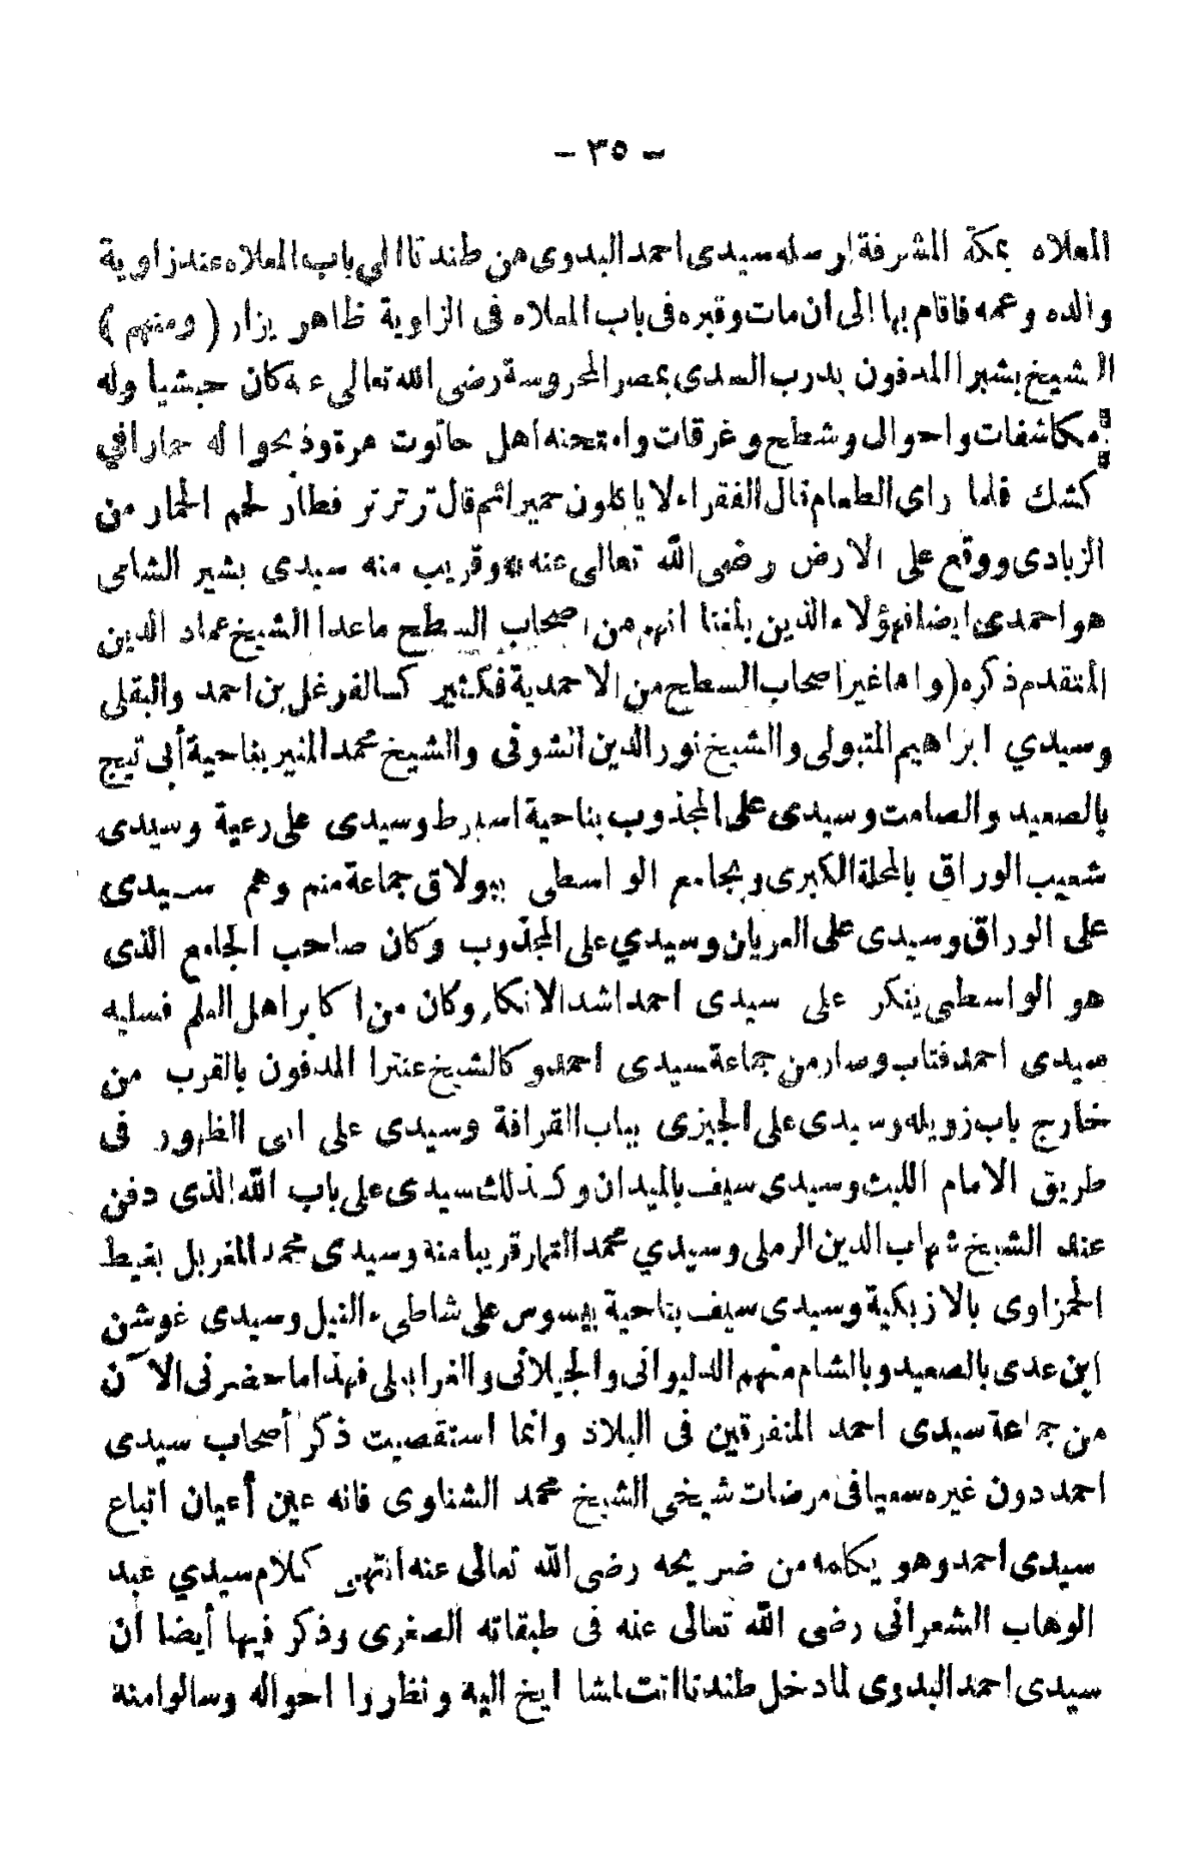 - ٣٥ -
المعلاه بمكة المشرفة ارسله سيدى احمد البدوى من طندتا الي باب المعلاه عند زاوية
والده وعمه فاقام بها الى ان مات وقبره فى باب المعلاه فى الزاوية ظاهر يزار ( ومنهم )
الشيخ بشيرا المدفون بدرب السدى بمصر المحروسة رضى الله تعالى عنه كان حبشيا وله
مكاشفات واحوال وشطح وغرقات وامتحنه اهل حانوت مرة وذبحوا له حمارا في
كشك فلما راي الطعام قال الفقراء لا ياكلون حميرا ثم قال تر تر تر فطار لحم الحمار من
الزبادى ووقع على الارض رضى الله تعالى عنه * وقريب منه سيدى بشير الشامى
هو احمدى ايضا فهؤلاء الذين بلغنا انهم من اصحاب السطح ماعدا الشيخ عماد الدين
المتقدم ذكره ( واما غير اصحاب السطح من الاحمدية فكثير كسالفرغل بن احمد والبقلى
وسيدي ابراهيم المتبولى والشيخ نور الدين الشونى والشيخ محمد المنير بناحية أبى تيج
بالصعيد والصامت وسيدى على المجذوب بناحية اسيرط وسيدى على رعية وسيدى
شعيب الوراق بالمحلة الكبرى وبجامع الواسطى ببولاق جماعة منهم وهم سيدى
على الوراق وسيدى على العريان وسيدي على المجذوب وكان صاحب الجامع الذى
هو الواسطى ينكر على سيدى احمد اشد الانكار وكان من اكابر اهل العلم فسلبه
سيدى احمد فتاب وصار من جماعة سيدى احمد وكالشيخ عنترا المدفون بالقرب من
خارج باب زويله وسيدى على الجيزى بباب القرافة وسيدى على ابى الظهور فى
طريق الامام الليث وسيدى سيف بالميدان وكذلك سيدى على باب الله الذى دفن
عنده الشيخ شهاب الدين الرملى وسيدي محمد القمار قريبا منة وسيدى محمد المغربل بغيط
الحمزاوى بالازبكية وسيدى سيف بناحية بيسوس على شاطىء النيل وسيدى غوشن
ابن عدى بالصعيد وبالشام منهم الدليوانى والجيلانى والغرابلى فهذا ما حضرنى الآن
من جماعة سيدى احمد المتفرقين فى البلاد وانما استقصيت ذكر أصحاب سيدى
احمد دون غيره سعيا فى مرضات شيخى الشيخ محمد الشناوى فانه عين أعيان اتباع
سيدى احمد وهو يكلمه من ضريحه رضى الله تعالى عنه انتهى كلام سيدي عبد
الوهاب الشعرانى رضى الله تعالى عنه فى طبقاته الصغرى وذكر فيها أيضا ان
سيدى احمد البدوى لما دخل طندتا اتت المشايخ اليه ونظروا احواله وسالوا منة